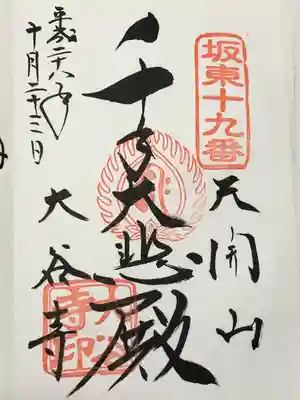 坂東十九番
天開山
千手大悲殿
大谷寺
大谷寺印
平成二八年
十月二十三日